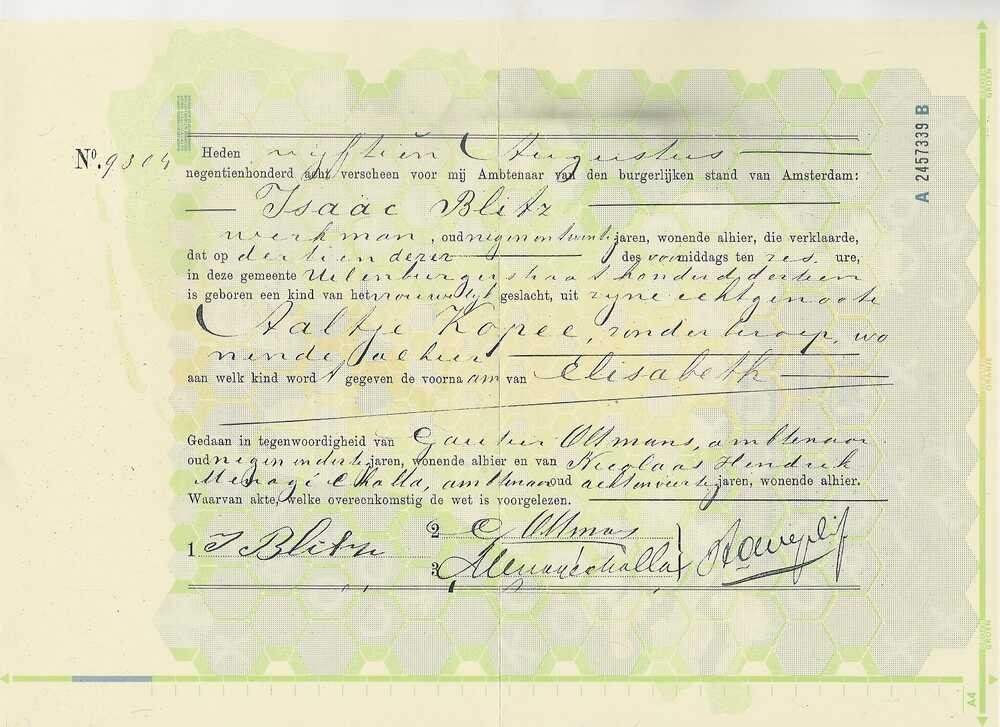 Nº. 9304 Heden vijftien Augustus
negentienhonderd acht verscheen voor mij Ambtenaar van den burgerlijken stand van Amsterdam:
Isaac Blitz
werkman, oud negen en twintig jaren, wonende alhier, die verklaarde,
dat op dertien dezer des voormiddags ten zes ure,
in deze gemeente Uilenburgerstraat honderd dertien
is geboren een kind van het vrouwelijk geslacht, uit zijne echtgenoote
Aaltje Kopee, zonder beroep, wo
nende alhier
aan welk kind wordt gegeven de voornaam van Elisabeth
Gedaan in tegenwoordigheid van Oltmans, ambtenaar
oud negen en dertig jaren, wonende alhier en van Nicolaas Hendrik
Menagé Challa, ambtenaar oud acht en veertig jaren, wonende alhier.
Waarvan akte, welke overeenkomstig de wet is voorgelezen.
1 I Blitz
2 Oltmans
3 Menagé Challa
A 2457339 B
GROEN
ORANJE
GROEN
A4